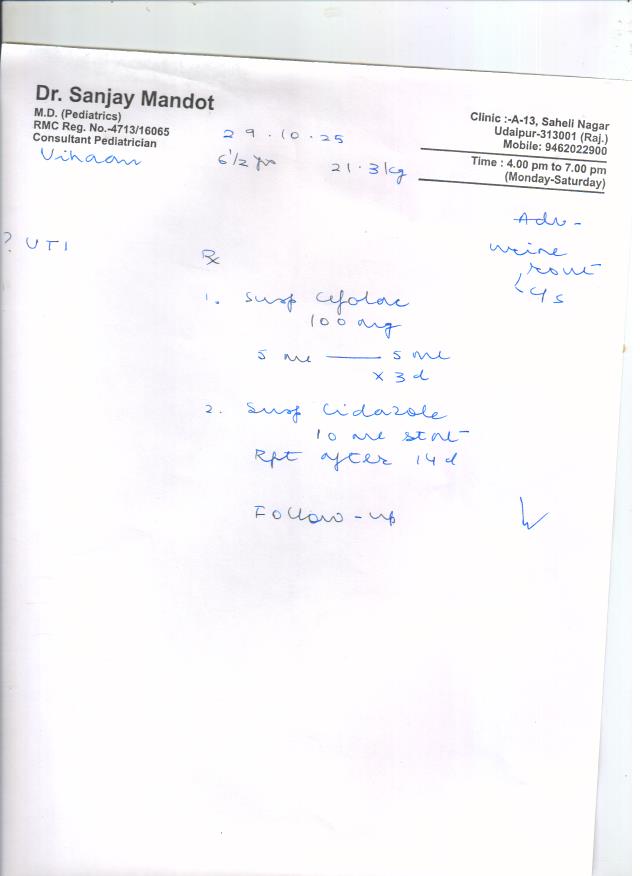 Dr. Sanjay Mandot
M.D. (Pediatrics)
RMC Reg. No.-4713/16065
Consultant Pediatrician
Clinic :-A-13, Saheli Nagar
Udaipur-313001 (Raj.)
Mobile: 9462022900
Time : 4.00 pm to 7.00 pm
(Monday-Saturday)
29.10.25
Vihaan 6 1/2 yrs 21.3 kg
Adv-
urine
rout
? UTI
Rx
1. Susp Cefolac
100 mg
5 ml — 5 ml
x 3 d
2. Susp Cidazole
10 ml stat
Rpt after 14 d
Follow-up